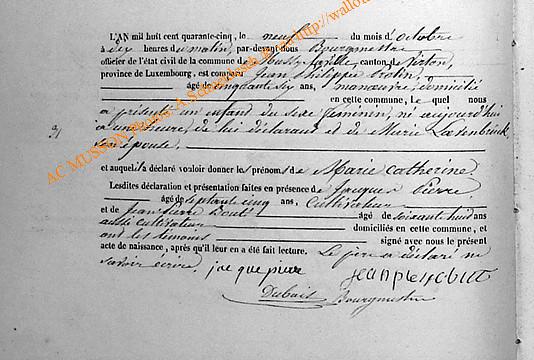 L'AN mil huit cent quarante-cinq, le neuf du mois d'octobre
à dix heures du matin, par-devant nous Bourgmestre
officier de l'état civil de la commune de Mussy-la-ville, canton de Virton,
province de Luxembourg, est comparu Jean Philippe
âgé de cinquante six ans, manœuvre, domicilié
en cette commune, Lequel nous
a présenté un enfant du sexe féminin, né aujourd'hui
à une heure, de lui déclarant et de Marie
son épouse.
et auquel il a déclaré vouloir donner les prénoms de Marie Catherine.
Lesdites déclaration et présentation faites en présence de Jacques Pierre
âgé de septante cinq ans, Cultivateur
et de Jean Pierre Bout âgé de soixante huit ans
aussi cultivateur domiciliés en cette commune, et
ont les témoins signé avec nous le présent
acte de naissance, après qu'il leur en a été fait lecture. Le père a déclaré ne
savoir écrire. jacque pierre
Bourgmestre
AC MUSSON Photos: A.